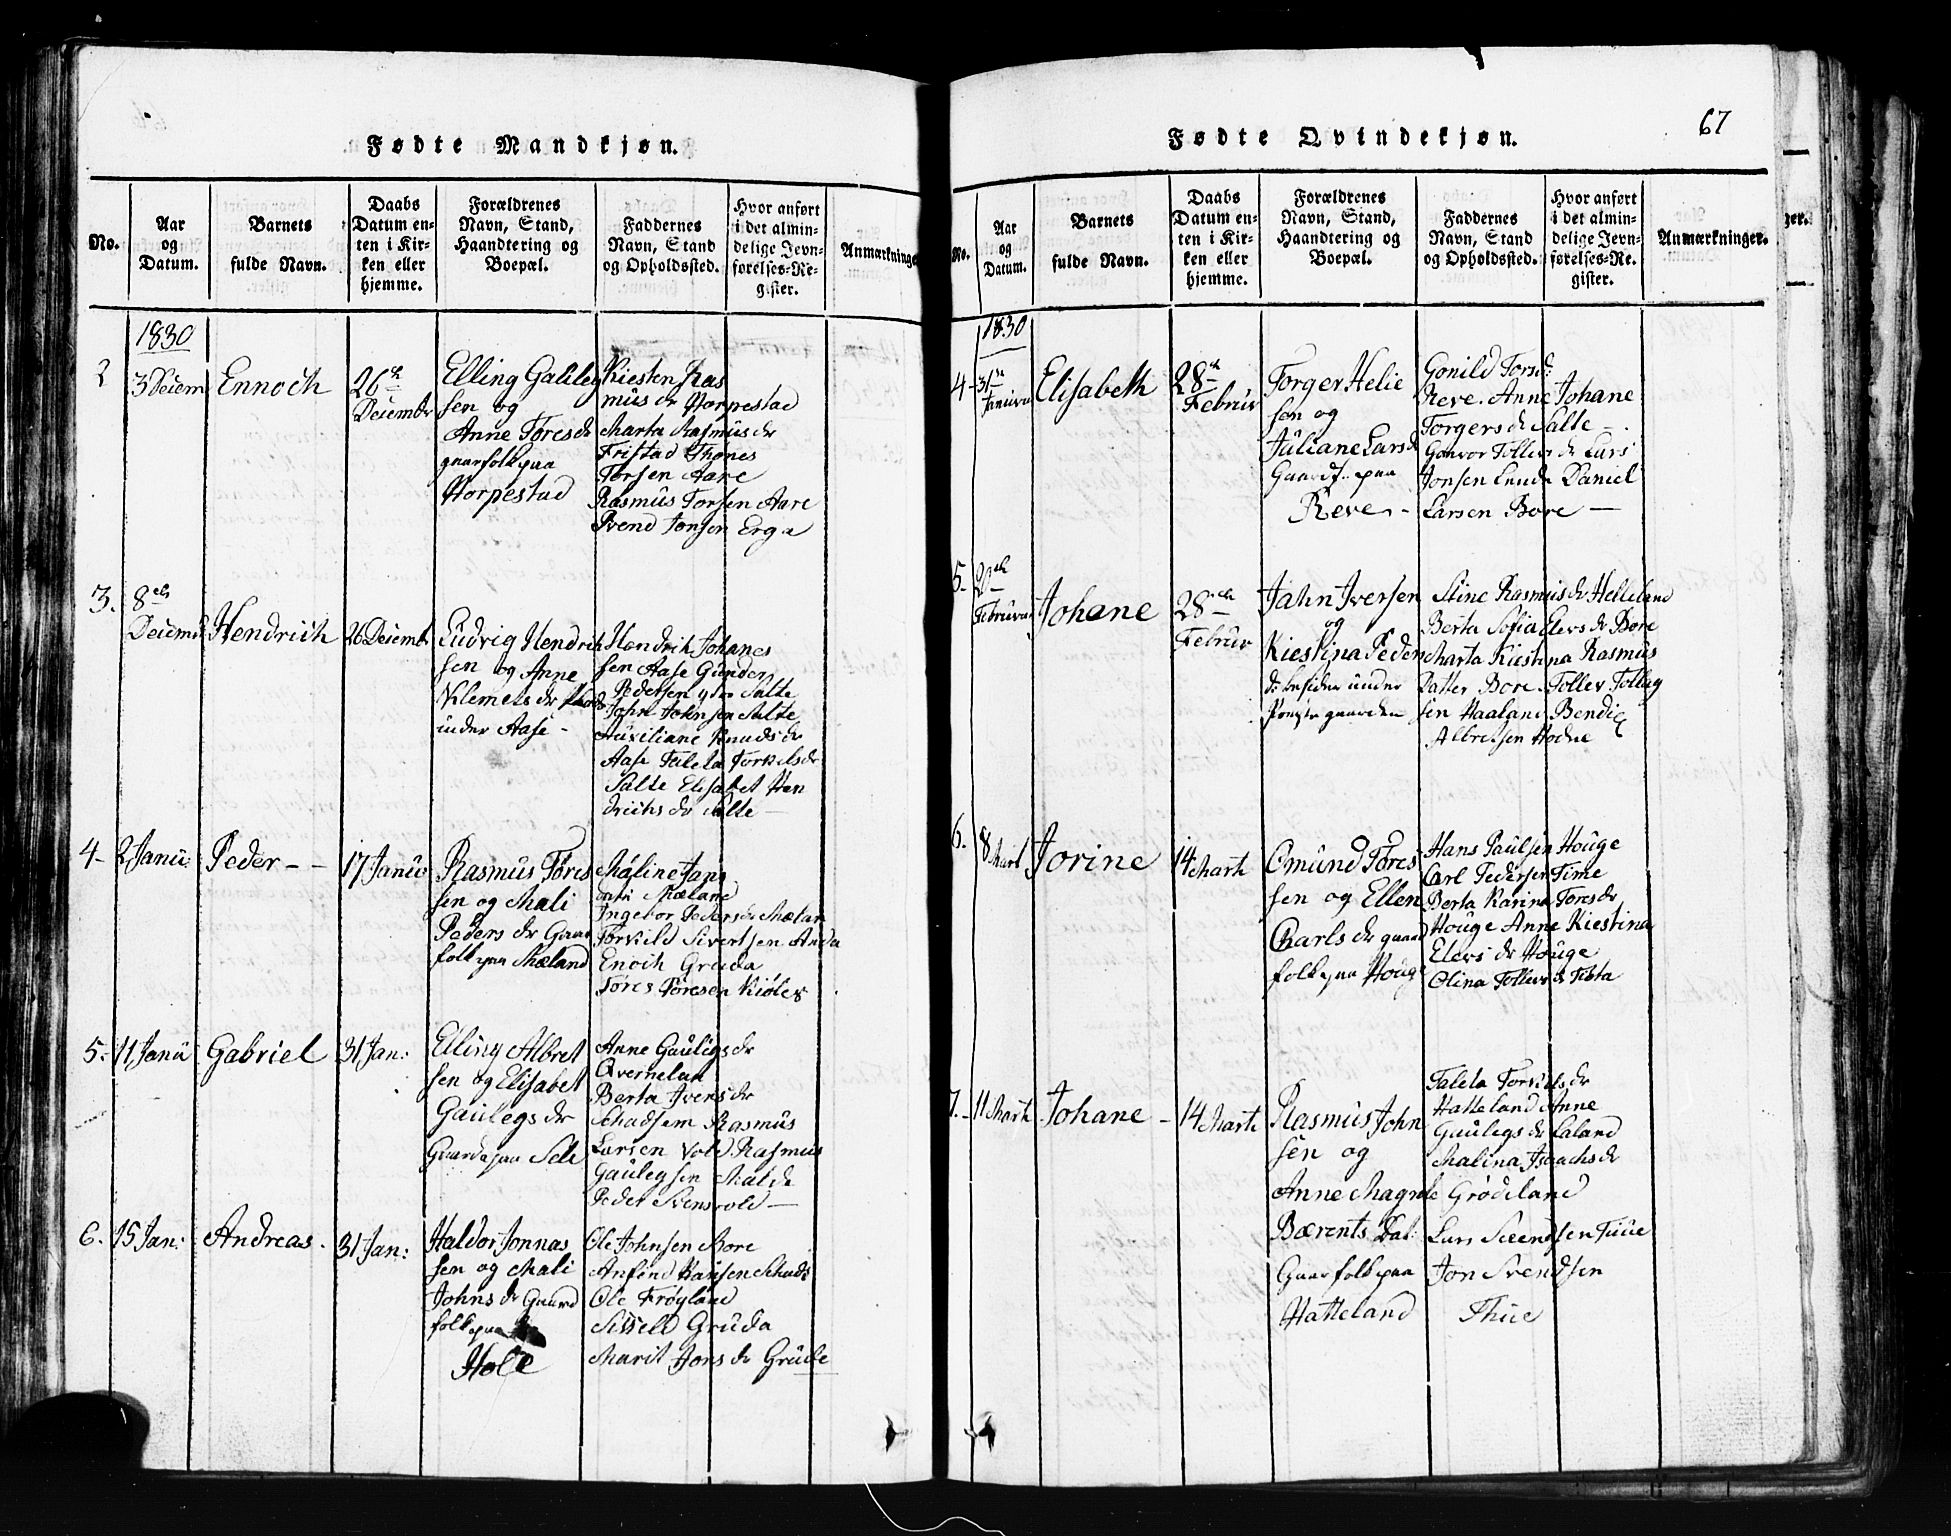 67
Fødte Mandkjøn.
No.
Aar
og
Datum.
Barnets
fulde Navn.
Daabs
Datum en-
ten i Kir-
ken eller
hjemme.
Forældrenes
Navn, Stand,
Haandtering og
Boepæl.
Faddernes
Navn, Stand
og Opholdssted.
Hvor anført
i det almin-
delige Jevn-
førelses-Re-
gister.
Anmærkninge
1830
2
3 Deiem
Ennoch
26de
Deiembr
Elling Galileg
sen og
Anne Toresdr
gaarfolk paa
Horpestad
Kiesten Ras
musdr Horpestad
Marta Rasmusdr
Fristad Thones
Torsen Aare
Rasmus Torsen Aare
Svend Jonsen Erga
3.
8de
Deiemb
Hendrich
26 Deiembr
Ludvig Hendrik
sen og Anne
Klemetsdr
under Aase -
Hendrik Johanes
sen Aase Gunder
Pedersen Salte
John Johnsen Salte
Auxiliane Knudsdr
Aase Taleta Torkelsdr
Salte Elisabet Hen
drichsdr Salte -
4-
2 Janu:
Peder - -
17 Januv
Rasmus Tøres
sen og Mali
Pedersdr Gaar
folk paa Mæland
Maline Jans
Mæland
Ingebor Pedersdr Mælan
Torkild Sivertsen Anda
Enoch Gruda
Tøres Tøresen Kiølev
5-
11 Janu
Gabriel
31 Jan:
Elling Albret
sen og Elisabet
Gaulegsdr
Gaarda paa Sele
Anne Gauligsdr
Qvernelan
Berta Iversdr
Schadsem Rasmus
Larsen Vold Rasmus
Gaulegsen Malde
Peder Svensvold -
6.
15 Jan:
Andreas.
31 Jan:
Haldor Jonnas
sen og Mali
Johnsdr Gaard
folk paa
Hole
Ole Johnsen Bore
Anfind Hansen Schads
Ole Frøyland
Sisseld Gruda
Marit Jonsdr Grude
Fødte Qvindekjøn.
No.
Aar
og
Datum.
Barnets
fulde Navn.
Daabs
Datum en-
ten i Kir-
ken eller
hjemme.
Forældrenes
Navn, Stand,
Haandtering og
Boepæl.
Faddernes
Navn, Stand
og Opholdssted.
Hvor anført
i det almin-
delige Jevn-
førelses-Re-
gister.
Anmærkninger.
1830
4-
31te
Januva
Elisabeth
28de
Februv
Torger Helie
sen og
Juliane Larsd
Gaardf. paa
Reve -
Gonild Torsd:
Reve. Anne Johane
Torgersdr Salte -
Gunvor Tollevsdr Lars
Jonsen Lende Daniel
Larsen Bore -
5.
2de
Februva
Johane
28de
Februv
Jahn Iversen
og
Kiestina Peders
dr besider under
Præstegaarden
Stine Rasmusdr Helleland
Berta Sofia Elevsdr Bore
Marta Kiestina Rasmus
Datter Bore. Tollev Tolleg
sen Haaland Bendic
Albretsen Hodne
6.
8 Mart
Jorine
14 Marti
Omund Tores
sen og Ellen
Carlsdr gaard
folk paa Houge
Hans Paulsen Houge
Carl Pedersen Time
Berta Karina Toresdr
Houge Anne Kiestina
Elevsdr Houge
Olina Tollevsdr Tibta
7. -
11 Marti
Johane -
14 Marti
Rasmus John
sen og
Anne Magnle
Bærents Dat:
Gaarfolk paa
Hatteland
Taleta Torkelsdr
Hatteland Anne
Gaulegsdr Laland
Malina Isaachsdr
Grødeland
Lars Svendsen Tiue
Jon Svendsen
Thue